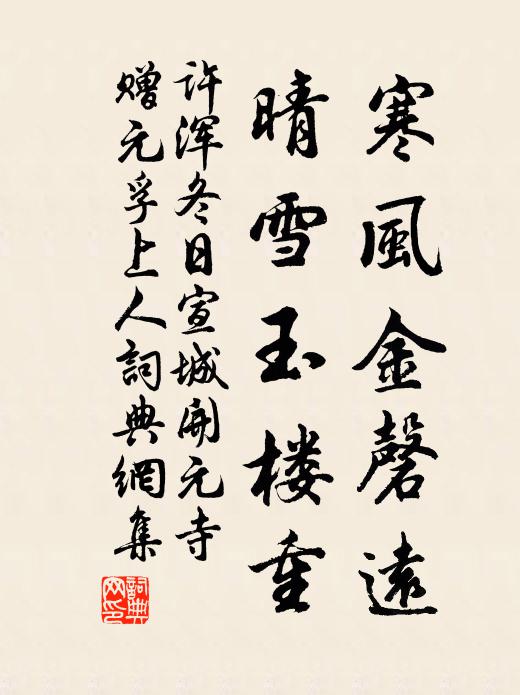 寒風金磬遠
晴雪玉楼重
许浑冬日宣城開元寺
赠元孚上人詞典網集
詞典
网印